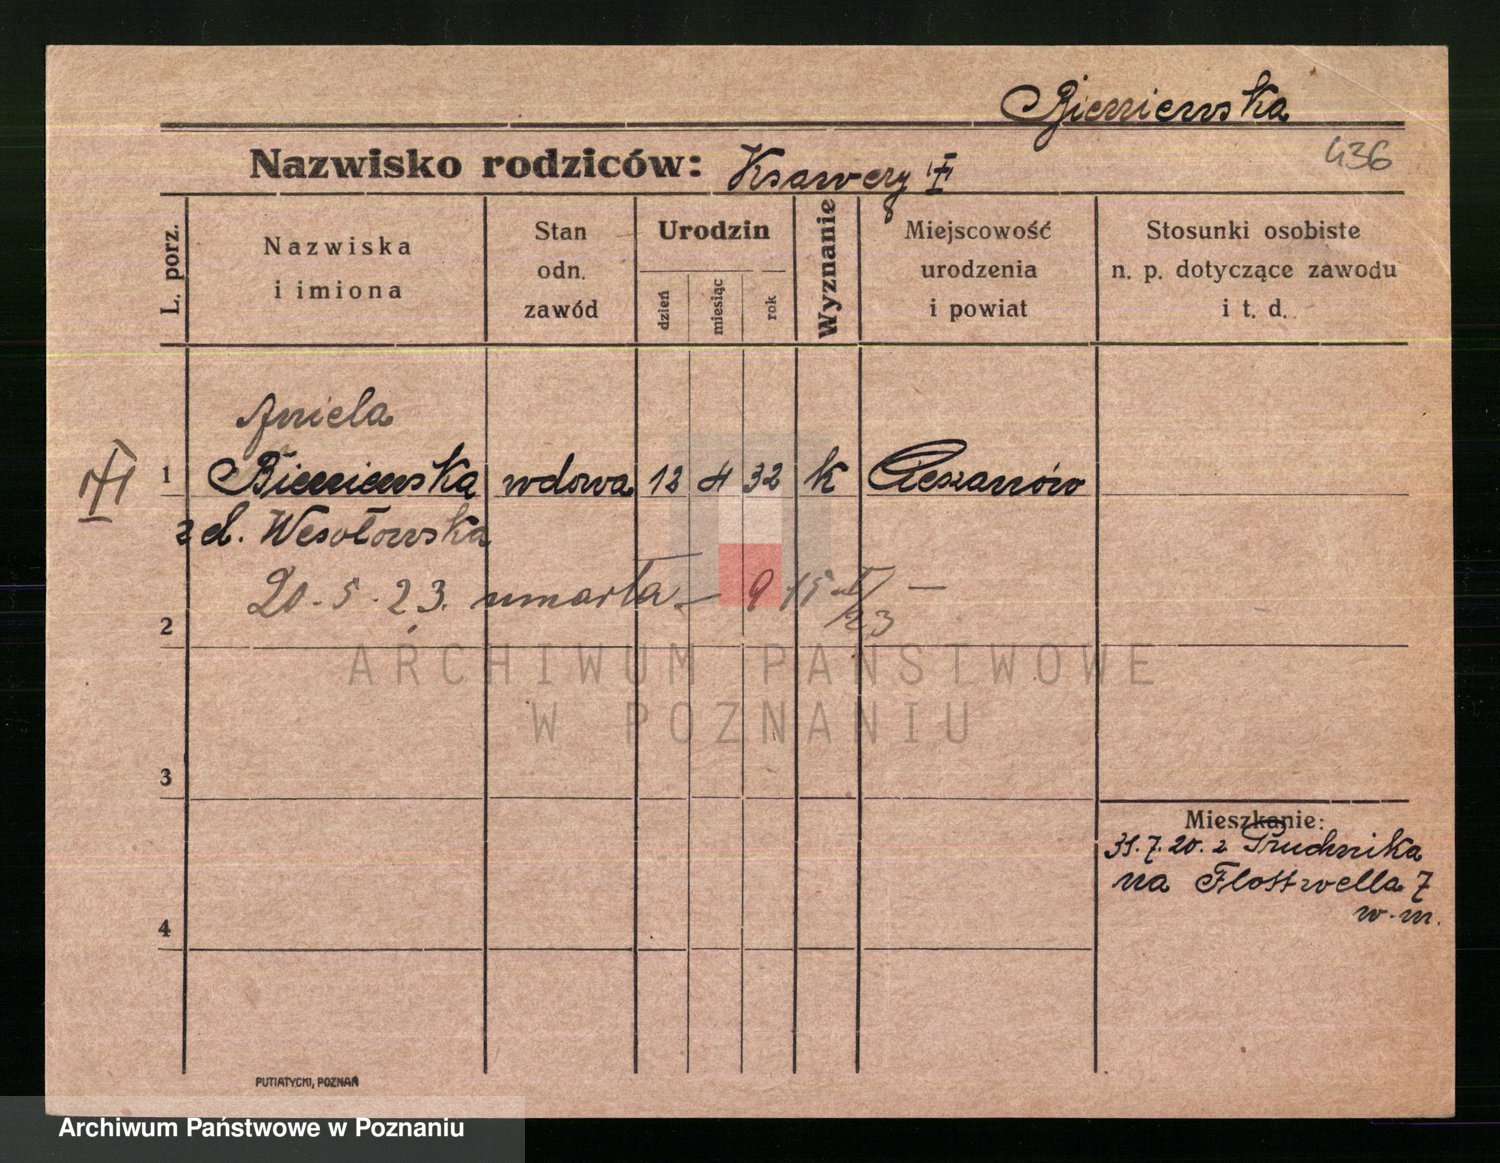 Bieniewska
436
Nazwisko rodziców: Ksawery
L. porz.
Nazwiska i imiona
Stan odn. zawód
Urodzin
dzień
miesiąc
rok
Wyznanie
Miejscowość urodzenia i powiat
Stosunki osobiste n. p. dotyczące zawodu i t. d.
Aniela
1 Bieniewska wdowa 12 4 32 k Cieszanów
z d. Wesołowska
20.5.23. umarła 915
23
2
ARCHIWUM PAŃSTWOWE
W POZNANIU
3
Mieszkanie:
31.7.20. z Prudnika
na Flottwella 7
w. m.
4
PUTIATYCKI, POZNAŃ
Archiwum Państwowe w Poznaniu